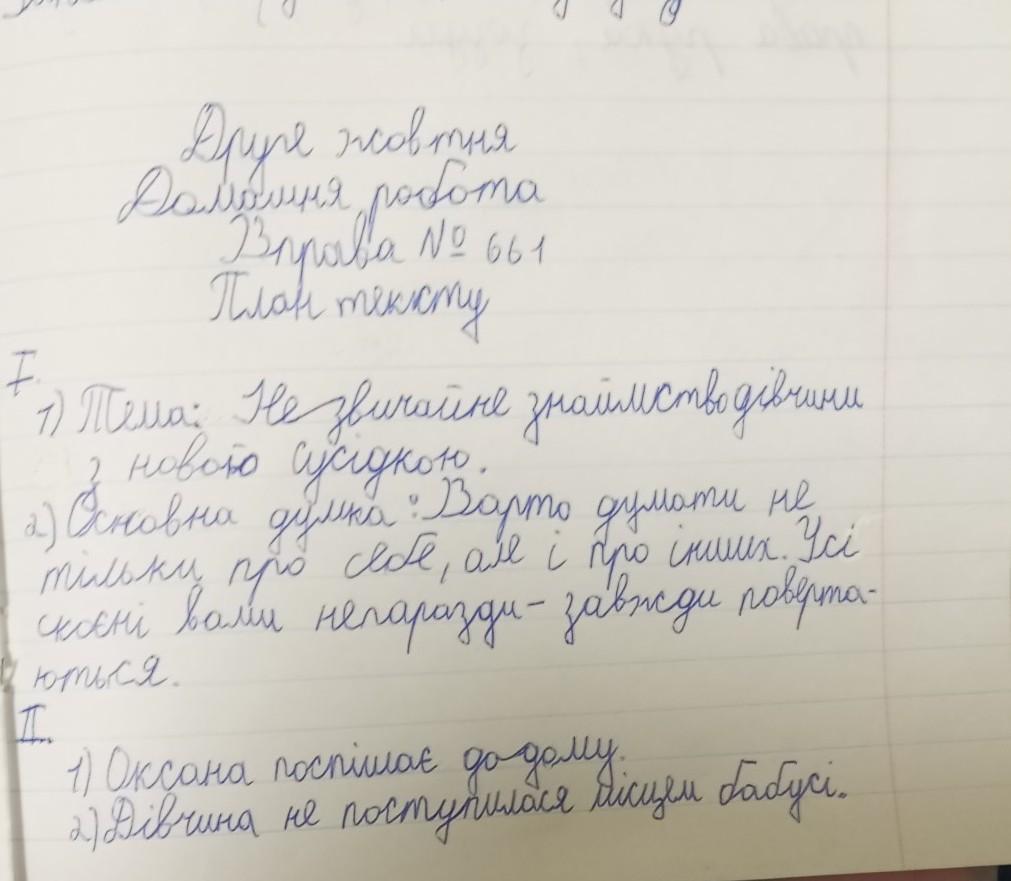 Друге жовтня
Домашня робота
Вправа № 661
План тексту
I.
1) Тема: Незвичайне знаймство дівчини
з новою сусідкою.
2) Основна думка: Варто думати не
тільки про себе, але і про інших. Усі
скоєні вами негаразди - завжди поверта-
ються.
II.
1) Оксана поспішає додому.
2) Дівчина не поступилася місцем бабусі.